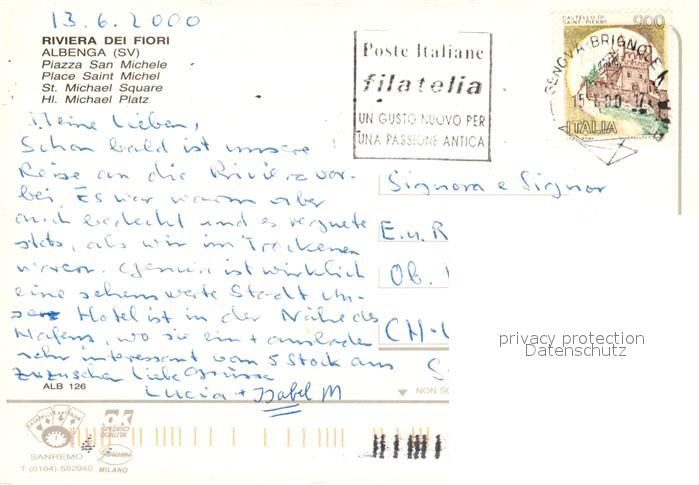 13.6.2000
RIVIERA DEI FIORI
ALBENGA (SV)
Piazza San Michele
Place Saint Michel
St. Michael Square
Hl. Michael Platz
Meine Lieben,
Schon bald ist unsere
Reise an die Riviera vor-
bei. Es war warm aber
auch bedeckt und es regnete
stets, als wir im Trockenen
waren. Genua ist wirklich
eine sehenswerte Stadt. Un-
ser Hotel ist in der Nähe des
Hafens, wo sie ein + ausladen
sehr interessant vom 5 Stock aus
zuzuschauen. Liebe Grüsse
Lucia + Isabel M
ALB 126
Poste Italiane
filatelia
UN GUSTO NUOVO PER
UNA PASSIONE ANTICA
CASTELLO DI
SAINT-PIERRE
900
ITALIA
GENOVA-BRIGNOLE
Signora e Signor
E. u. R
Ob.
CH-
privacy protection
Datenschutz
NON SC
SANREMO
T.(0184) 502940
ok
SPEDISCI
QUALITA'
MILANO